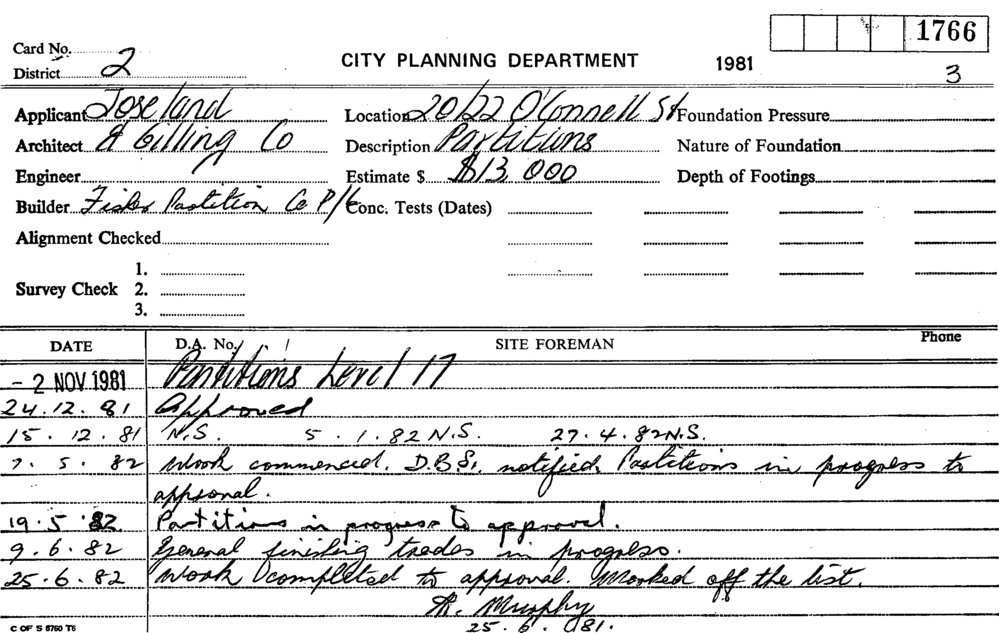 1766
Card No.
CITY PLANNING DEPARTMENT 1981
District 2
3
Applicant Joseland Location 20/22 O'Connell St Foundation Pressure
Architect & Gilling Co Description Partitions Nature of Foundation
Engineer Estimate $ $13,000 Depth of Footings
Builder Partition Co P/L Conc. Tests (Dates)
Alignment Checked
1.
Survey Check 2.
3.
DATE D.A. No. SITE FOREMAN Phone
- 2 NOV 1981 Partitions Level 17
24.12.81 Approved
15.12.81 N.S. 5.1.82 N.S. 27.4.82 N.S.
7.5.82 Work commenced. D.B.S. notified. Partitions in progress to
approval.
19.5.82 Partitions in progress to approval.
9.6.82 General finishing trades in progress.
25.6.82 Work completed to approval. Marked off the list.
Murphy
25.6.81.
C OF S 5760 T6